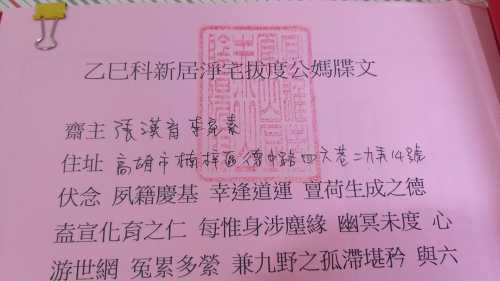 乙巳科新居淨宅拔度公媽牒文
齋主 張漢育 李宛蓁
住址 高雄市楠梓區德中路四六巷二九弄14號
伏念 夙籍慶基 幸逢道運 亶荷生成之德
盍宣化育之仁 每惟身涉塵緣 幽冥未度 心
游世網 冤累多縈 兼九野之孤滯堪矜 與六